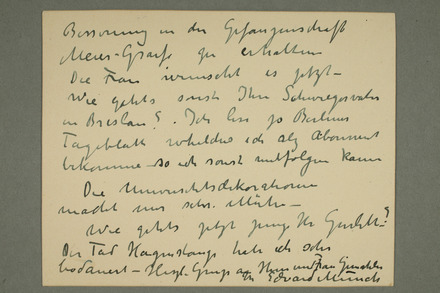 Besserung in der Gefangenschaft
Meier-Graefe zu erhalten
Die Frau wünscht es jetzt –
Wie gehts sonst Ihr Schwiegervater
in Breslau? . Ich lese jo Berliner
Tageblatt welches ich als Abonnent
bekomme – so ich sonst mitfolgen kann
Die Universitätsdekorationen
macht mir sehr Mühe –
Wie gehts jetzt junge Hr Gurlitt?
Der Tod Hagerstangs habe ich sehr
bedauert – Herzl. Gruss an Ihnen und Frau
Edvard Munch